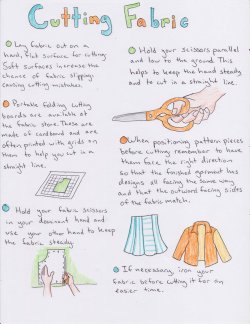 Cutting Fabric
Lay fabric out on a
hard, flat surface for cutting.
Soft surfaces increase the
chance of fabric slipping,
causing cutting mistakes.
Portable folding cutting
boards are available at
the fabric store. These are
made of cardboard and are
often printed with grids on
them to help you cut in a
straight line.
Hold your fabric scissors
in your dominant hand and
use your other hand to keep
the fabric steady.
Hold your scissors parallel
and low to the ground. This
helps to keep the hand steady
and to cut in a straight line.
When positioning pattern pieces
before cutting remember to have
them face the right direction
so that the finished garment has
designs all facing the same way
and that the outward facing sides
of the fabric match.
If necessary, iron your
fabric before cutting it for an
easier time.